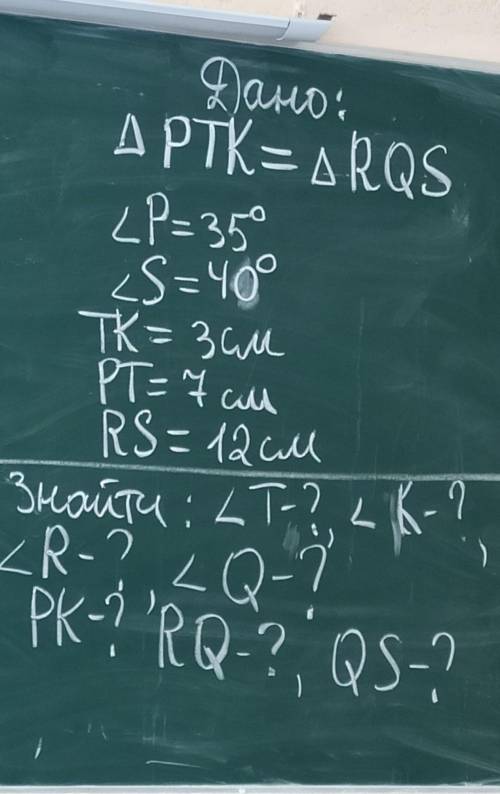 Дано:
Δ PTK = Δ RQS
∠P = 35°
∠S = 40°
TK = 3 см
PT = 7 см
RS = 12 см
Знайти : ∠T-?, ∠ K-?,
∠R-? ∠Q-?
PK-?, RQ-?, QS-?